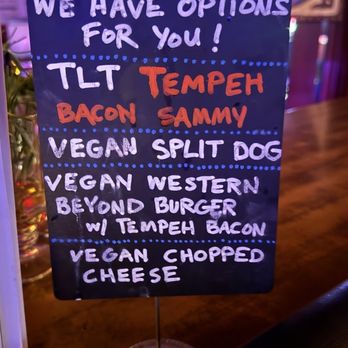 WE HAVE OPTIONS
FOR YOU!
TLT TEMPEH
BACON SAMMY
VEGAN SPLIT DOG
VEGAN WESTERN
BEYOND BURGER
W/ TEMPEH BACON
VEGAN CHOPPED
CHEESE